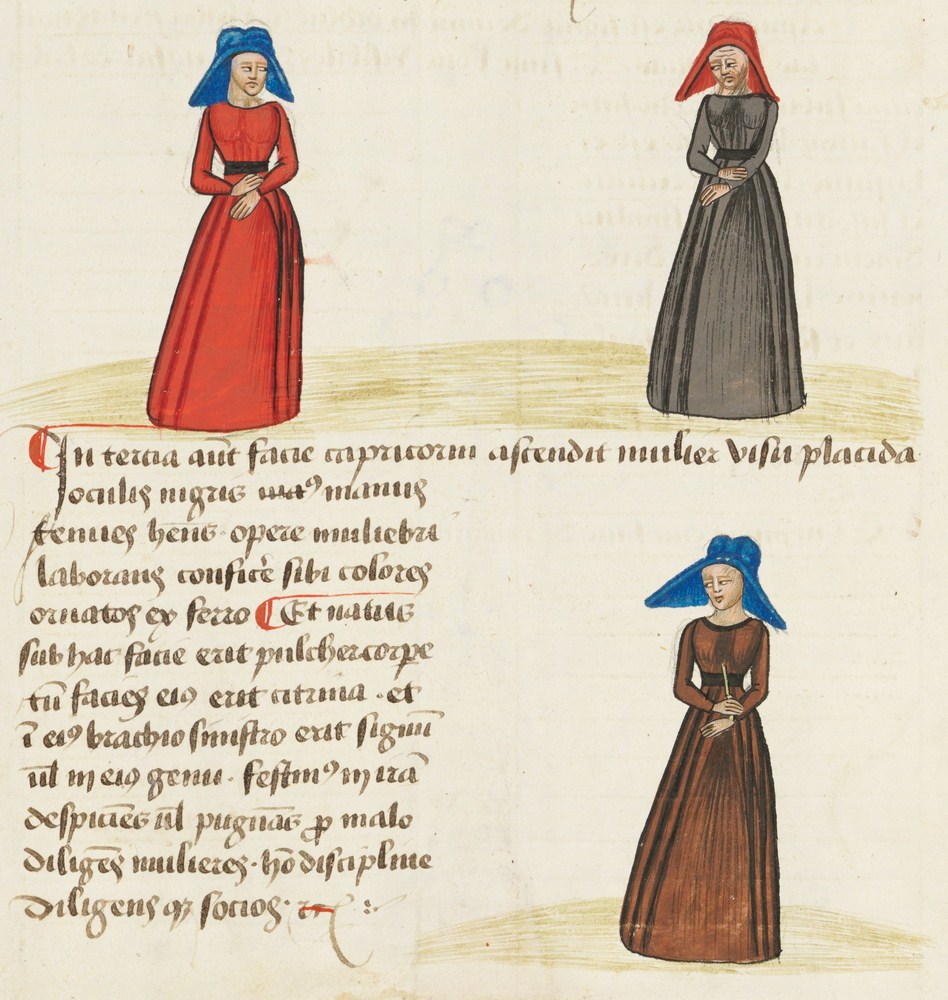 In tercia aūt facie capricorni ascendit mulier visu placida
oculis nigris manus
tenues hēns · opere muliebri
laborans conficēre sibi colores
ornatos ex ferro ¶ Et natus
sub hac facie erit pulcher corpe
tū facies eiꝰ erit citrina · et
ī eiꝰ brachio sinistro erit signū
ūl in eiꝰ genu · festinꝰ in irā
despiciēs ūl pugnās ꝓ malo
diligēs mulieres · hō discipline
diligens qꝫ socios ·